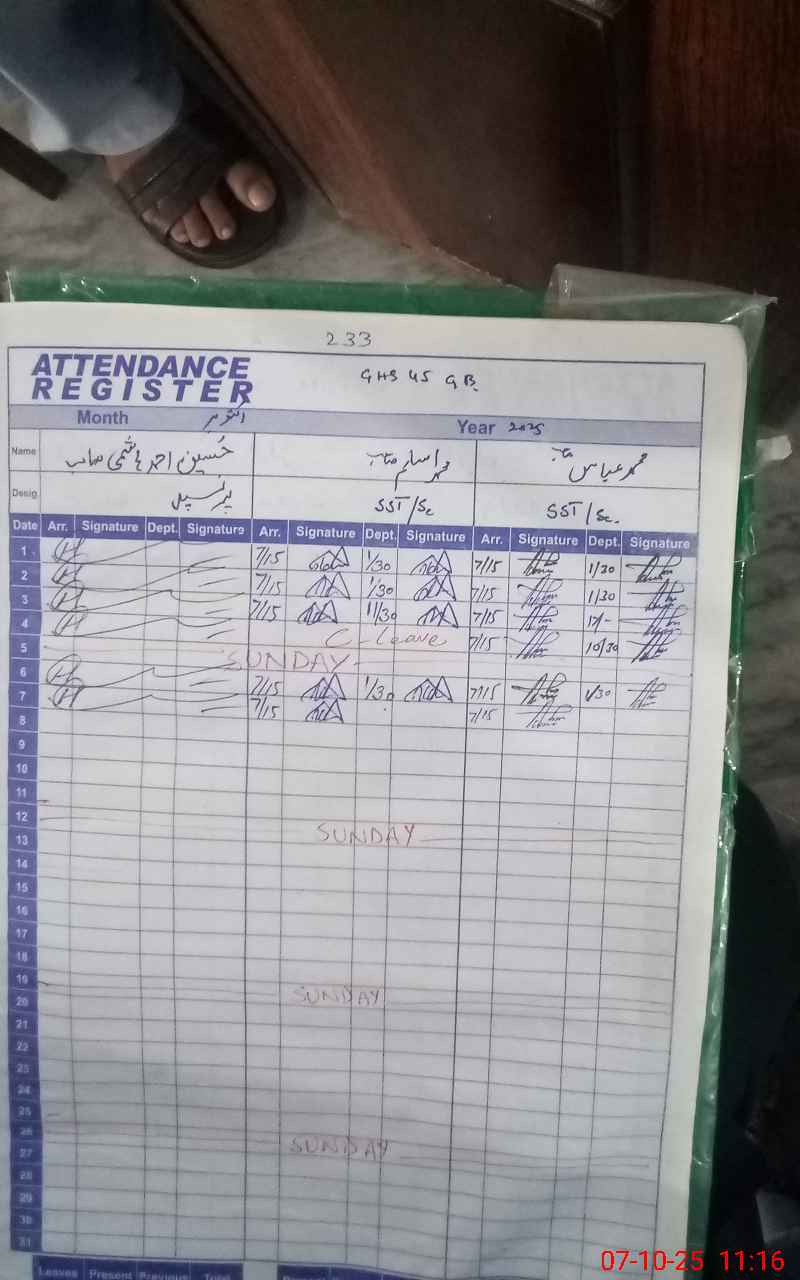 233
ATTENDANCE
REGISTER
GHS 45 GB.
Month اکتوبر Year 2025
Name حسین احمد ہاشمی صاحب محمد اسلم صاحب محمد عباس صاحب
Desig. پرنسپل SST/Sc SST/Sc.
Date Arr. Signature Dept. Signature Arr. Signature Dept. Signature Arr. Signature Dept. Signature
1 7/15 1/30 7/15 1/30
2 7/15 1/30 7/15 1/30
3 7/15 11/30 7/15
4 C-Leave 7/15 10/30
5 SUNDAY
6 7/15 1/30 7/15 1/30
7 7/15 7/15
8
9
10
11
12 SUNDAY
13
14
15
16
17
18
19 SUNDAY
20
21
22
23
24
25
26 SUNDAY
27
28
29
30
31
Leaves Present Previous Total
07-10-25 11:16